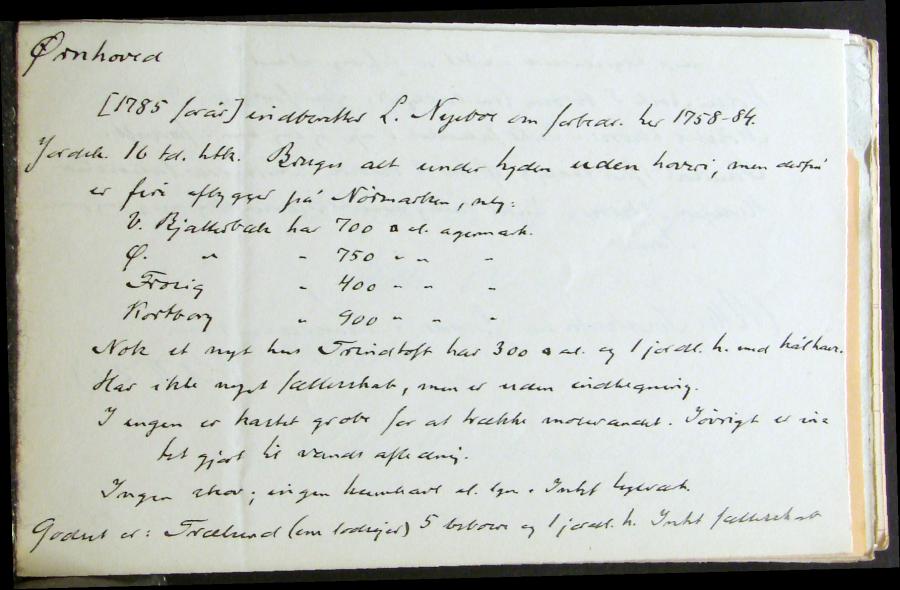 Ørnhoved
[1785 forår] indberetter L. Nyeboe om forbedr. her 1758-84.
Jordeh. 16 td. htk. Bruges alt under hgden uden hoveri, men derfra
er fire aflygger på Nörmarken, nly:
V. Bjallerbæk har 700 □ al. agermark.
Ø. " " 750 " " "
Frosig " 400 " " "
Kortborg " 900 " " "
Nok et nyt hus Trindtoft har 300 □ al. og 1 jordl. h. med kålhave.
Har ikke noget fællesskab, men er uden indhegning.
I engen er kastet grøbe for at trække mosevandet. Iövrigt er in-
tet gjort til vands afledning.
Ingen skov; ingen humlhave el. lgn. Intet tegl
Godset er: Trælund (em lodsejer) 5 beboere og 1 jordl. h. Intet fællesskab